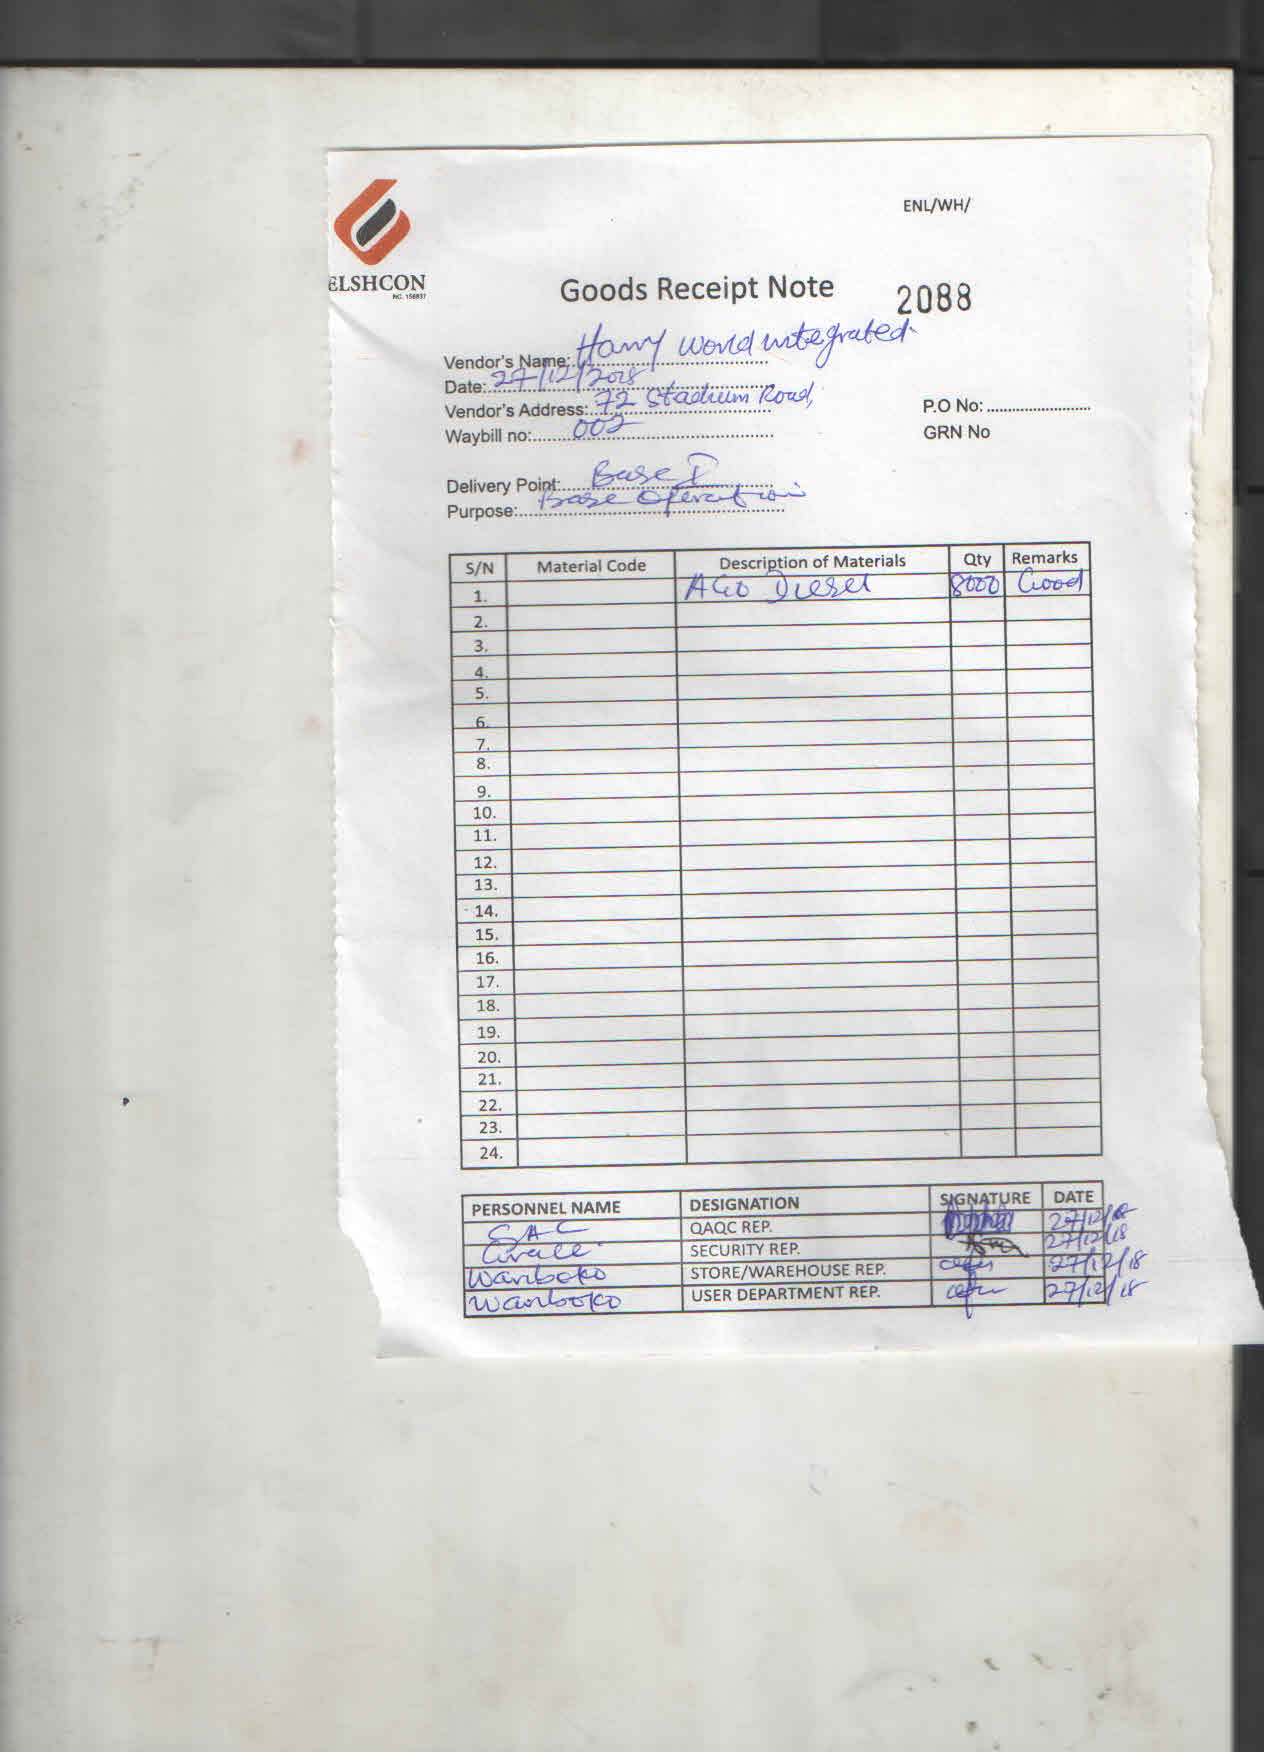 ENL/WH/
ELSHCON
RC. 156937
Goods Receipt Note 2088
Vendor's Name: Harry world integrated
Date: 27/12/2018
Vendor's Address: 72 Stadium Road,
P.O No:
Waybill no: 002
GRN No
Delivery Point: Base I
Purpose: Base Operation
S/N Material Code Description of Materials Qty Remarks
1. AGO Diesel 8000 Good
2.
3.
4.
5.
6.
7.
8.
9.
10.
11.
12.
13.
14.
15.
16.
17.
18.
19.
20.
21.
22.
23.
24.
PERSONNEL NAME DESIGNATION SIGNATURE DATE
QAQC REP. 27/12/18
SECURITY REP. 27/12/18
Wariboko STORE/WAREHOUSE REP. 27/12/18
Wariboko USER DEPARTMENT REP. 27/12/18